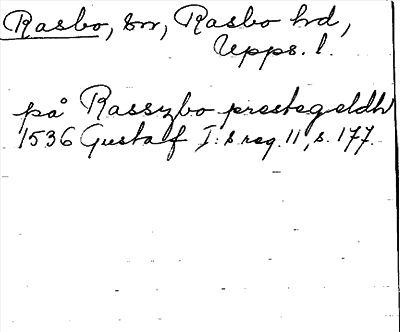 Rasbo, sn, Rasbo hd,
Upps. l.
på Rasszbo prestegeldh
1536 Gustaf I:s reg. 11, s. 177.